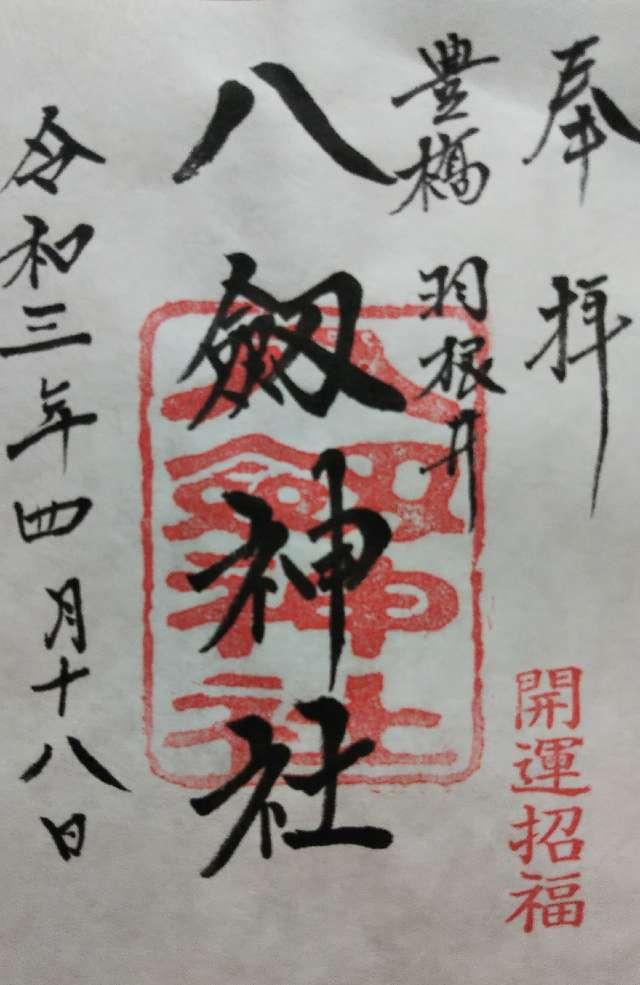 奉拝
豊橋 羽根井
八劔神社
八劔神社
令和三年四月十八日
開運招福